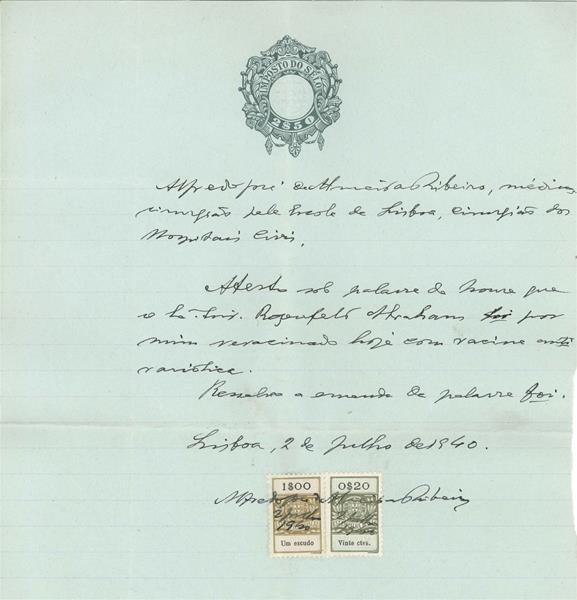 IMPOSTO DO SELO
2$50
Alfredo José d'Almeida Ribeiro, médico
cirurgião pela Escola de Lisboa, cirurgião dos
Hospitais Civis,
Atesto sob palavra de honra que
o Rosenfeld Abraham foi por
mim revacinado hoje com vacina anti
variolica.
Ressalvo a emenda da palavra foi.
Lisboa, 2 de Julho de 1940.
Alfredo José d'Almeida Ribeiro
1$00 0$20
1940
Um escudo Vinte ctvs.